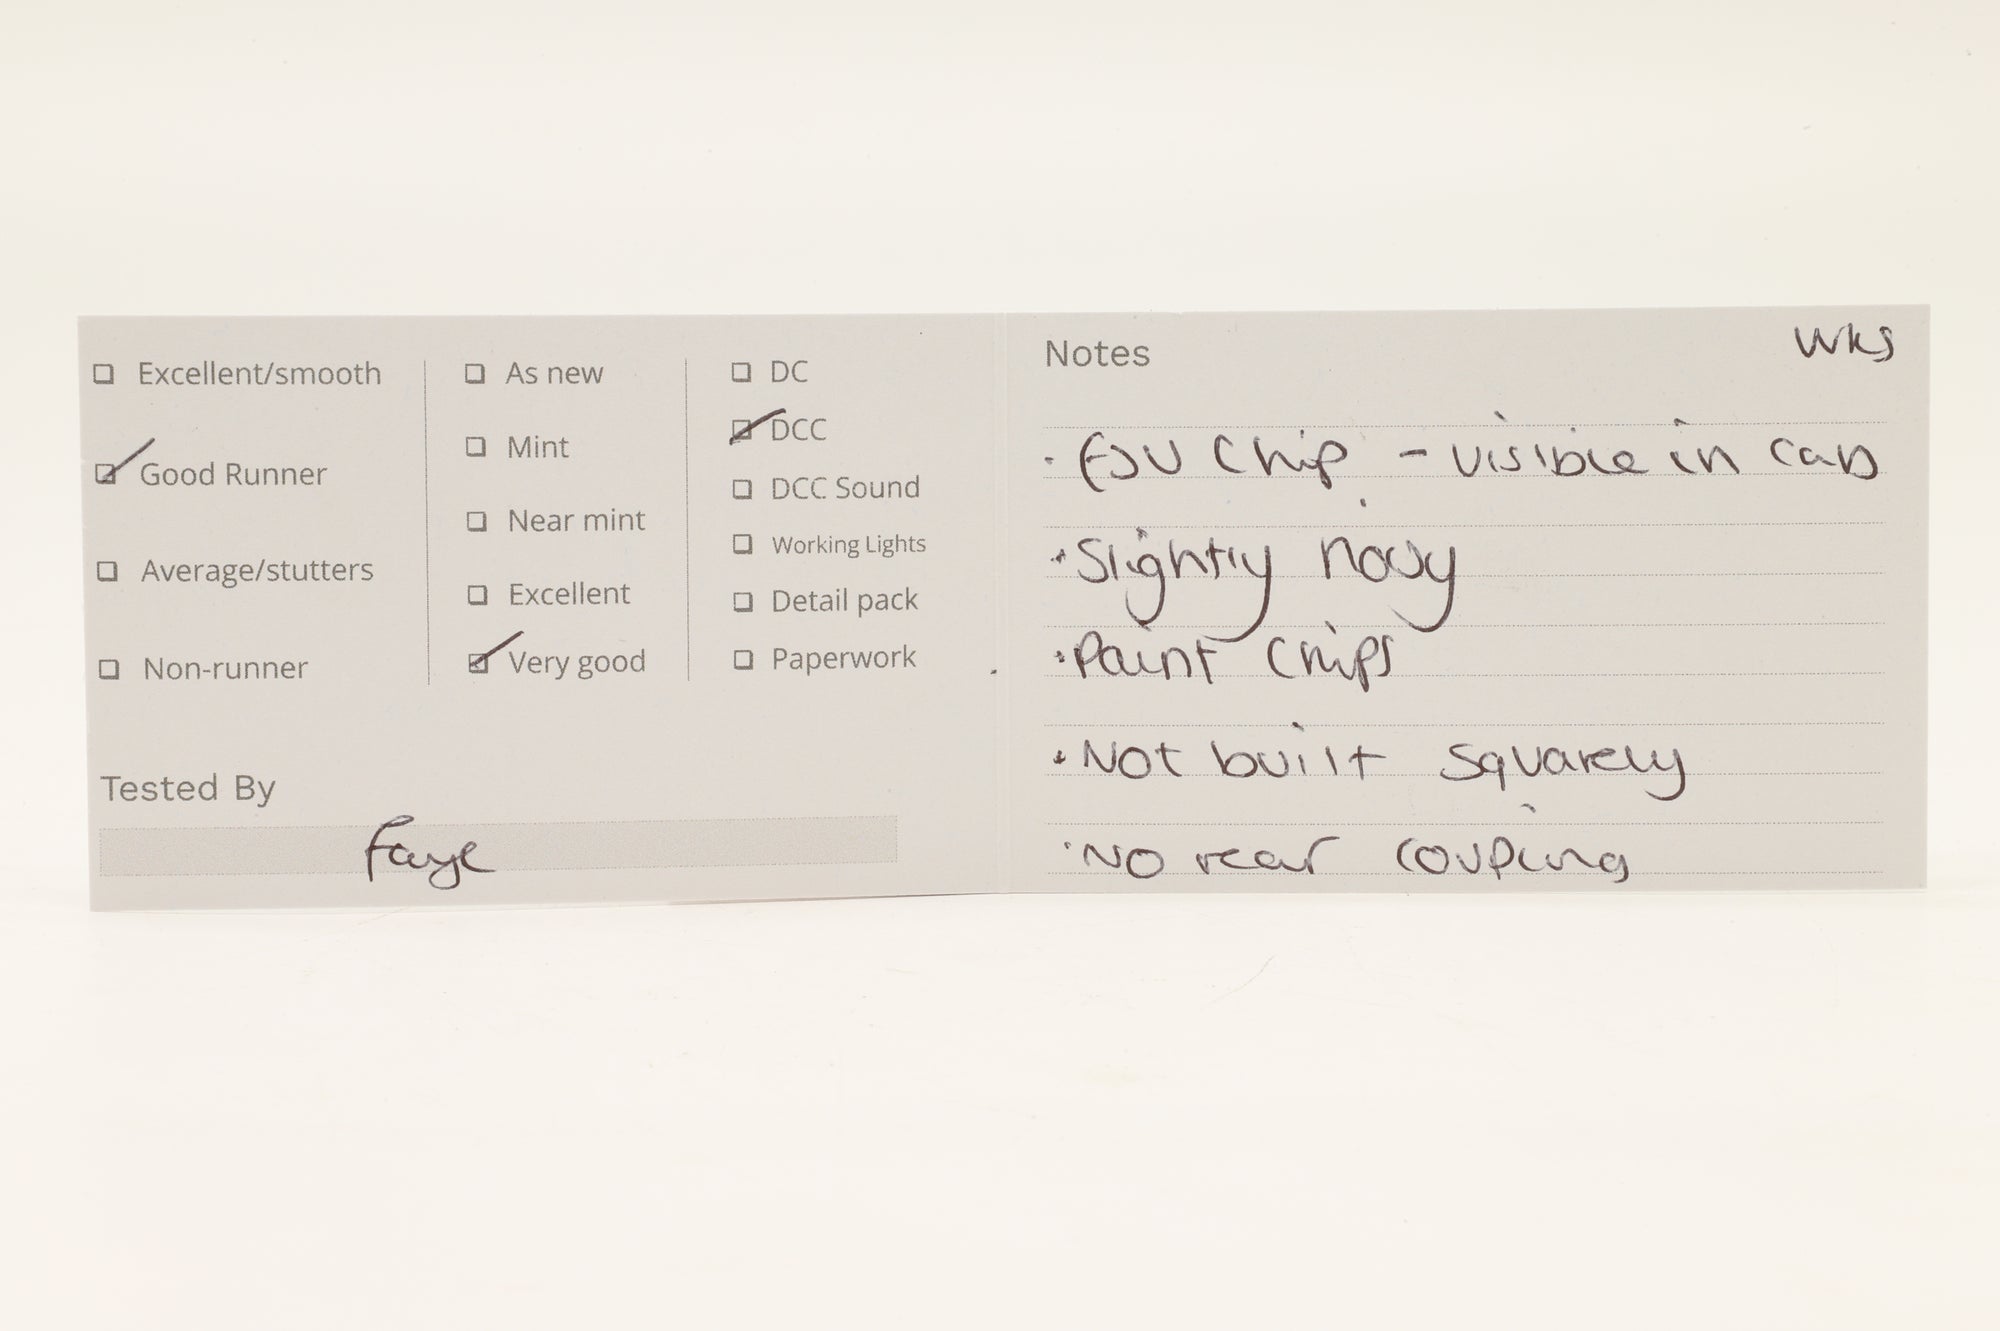 Excellent/smooth
Good Runner
Average/stutters
Non-runner
As new
Mint
Near mint
Excellent
Very good
DC
DCC
DCC Sound
Working Lights
Detail pack
Paperwork
Tested By
Faye
Notes
wks
· ESU Chip - visible in cab
· Slightly noisy
· Paint chips
· Not built squarely
· No rear coupling